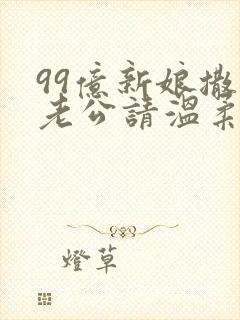 99億新娘撒
老公請溫柔
燈草